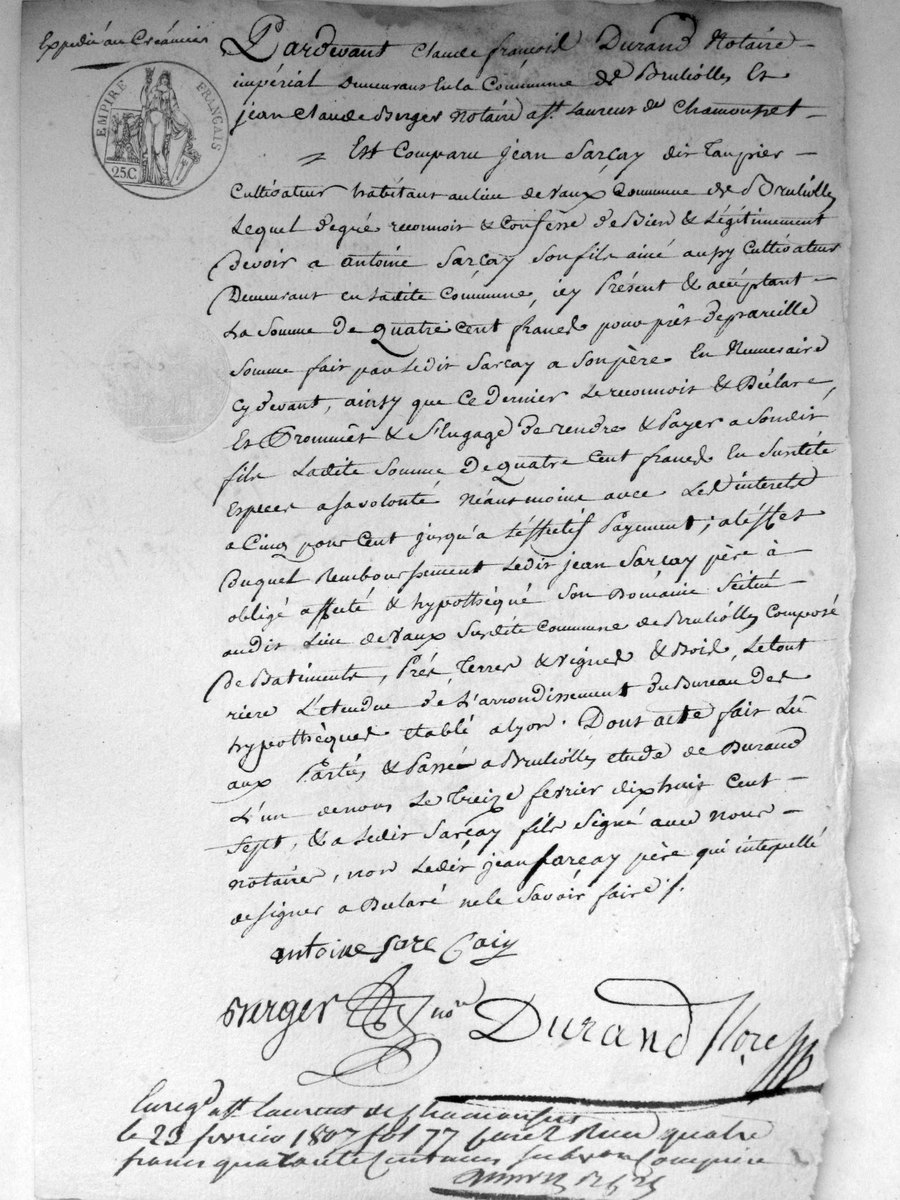 Expedié au Créancier
EMPIRE FRANÇAIS
25C
Pardevant Claude françois Durand Notaire
impérial Demeurant En la Commune de Brullioles Et
jean Claude Berger Notaire a St. Laurent de Chamousset
Est Comparu Jean Sarçay dit Taupier
Cultivateur habitant au lieu de Vaux Commune de Brullioles
Lequel de gré reconnoit & Confesse de Bien & Légitimement
Devoir a antoine Sarçay son fils ainé aussy Cultivateur
Demeurant en Ladite Commune, icy Présent & acceptant
La Somme de quatre cent francs pour prêt de pareille
Somme fait par Ledit Sarçay a Son père En Numeraire
Cy devant, ainsy que Ce dernier Le reconnoit & Déclare,
Et Prommet & S'Engage de rendre & Payer a Son dit
fils Ladite Somme de quatre Cent francs En Susdite
Especes a Sa volonté Néantmoins avec Les interets
a Cinq pour Cent jusqu'a L'effectif Payement; a l'effet
Duquel Remboursement Ledit jean Sarçay père à
obligé affecté & hypothéqué Son Domaine Scitué
audit Lieu de Vaux Susdite Commune de Brullioles Composé
De Batiments, Prés, Terres & vignes & Bois, Le tout
riere L'etendue de L'arrondissement du Bureau des
hypothèques etablé a Lyon. Dont acte fait Lu
aux Parties & Passé a Brullioles etude de Durand
L'un de nous Le Treize fevrier dix huit Cent
Sept, & a Ledit Sarçay fils Signé avec nous
notaires, non Ledit jean Sarçay père qui interpellé
de Signer a Déclaré ne le Savoir faire ./.
antoine Sarc Çaiy
Berger nore Durand Nore
Enregé a St Laurent de Chamousset
le 23 fevrier 1807 fol 77 Reçu quatre
francs quarante Centimes Subvon Comprise